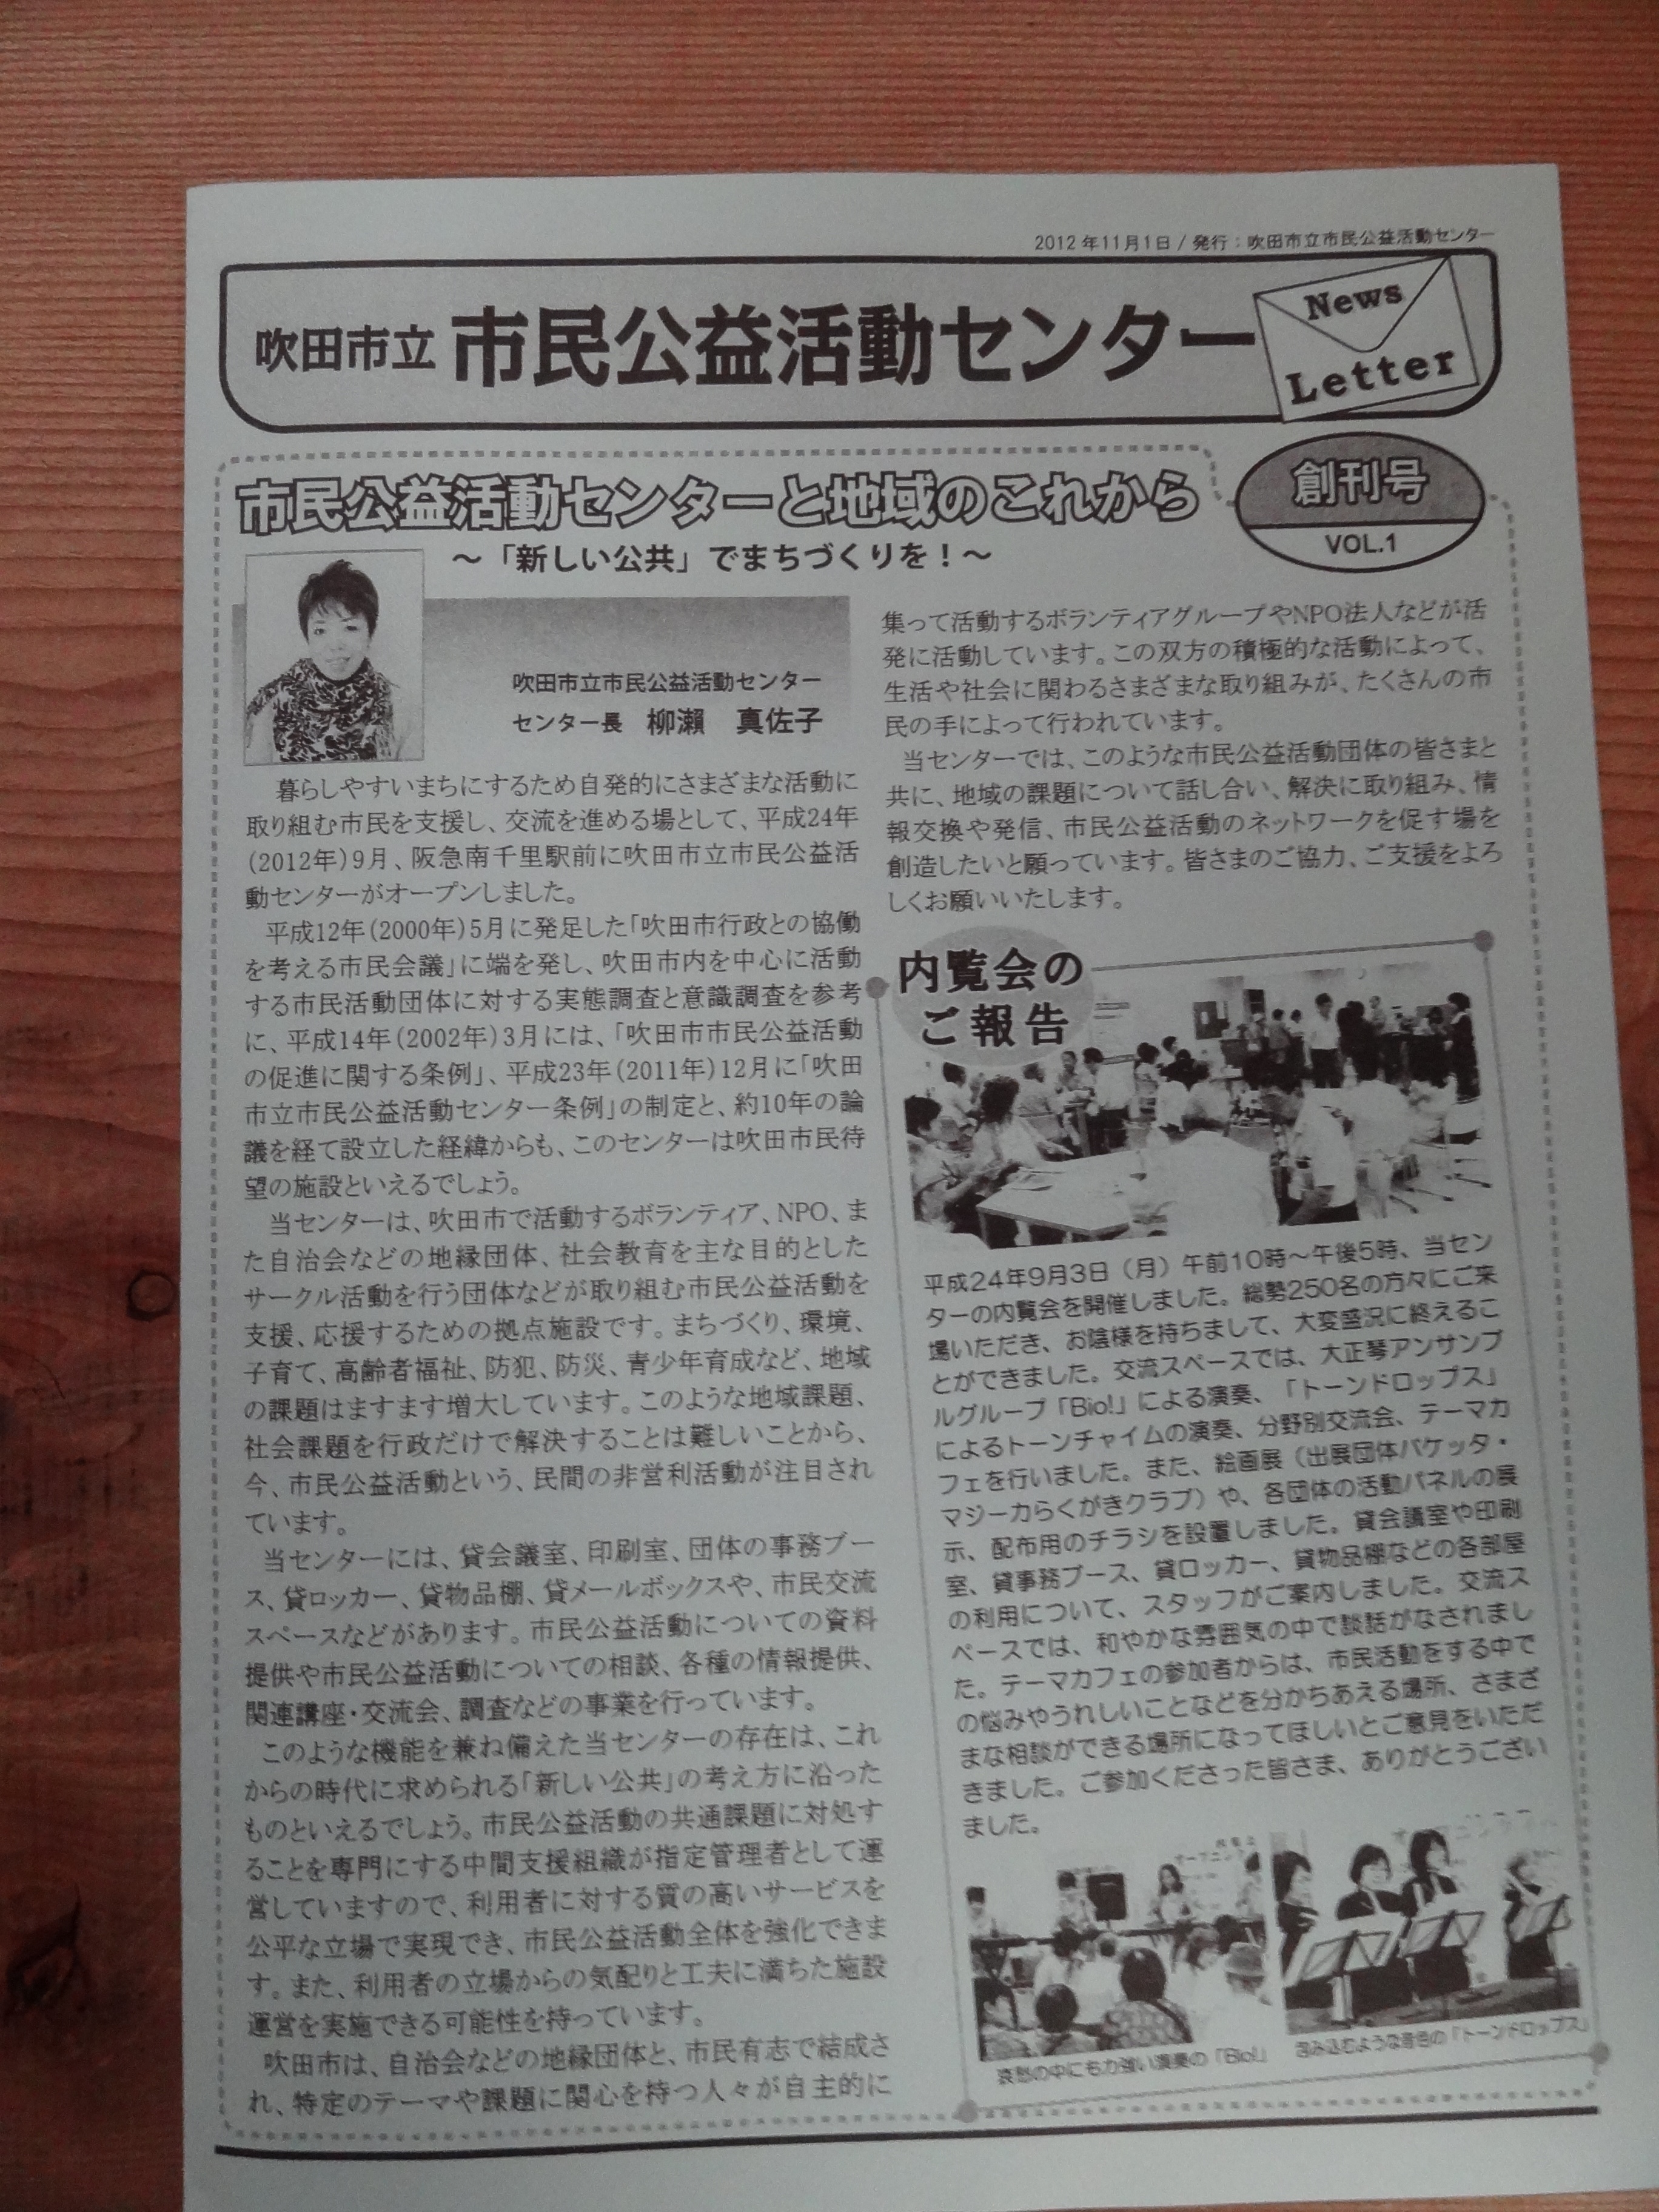 2012年11月1日 / 発行：吹田市立市民公益活動センター
吹田市立 市民公益活動センター
News
Letter
創刊号
VOL.1
市民公益活動センターと地域のこれから
～「新しい公共」でまちづくりを！～
吹田市立市民公益活動センター
センター長　柳瀬　真佐子
暮らしやすいまちにするため自発的にさまざまな活動に
取り組む市民を支援し、交流を進める場として、平成24年
(2012年)9月、阪急南千里駅前に吹田市立市民公益活
動センターがオープンしました。
平成12年(2000年)5月に発足した「吹田市行政との協働
を考える市民会議」に端を発し、吹田市内を中心に活動
する市民活動団体に対する実態調査と意識調査を参考
に、平成14年(2002年)3月には、「吹田市市民公益活動
の促進に関する条例」、平成23年(2011年)12月に「吹田
市立市民公益活動センター条例」の制定と、約10年の論
議を経て設立した経緯からも、このセンターは吹田市民待
望の施設といえるでしょう。
当センターは、吹田市で活動するボランティア、NPO、ま
た自治会などの地縁団体、社会教育を主な目的とした
サークル活動を行う団体などが取り組む市民公益活動を
支援、応援するための拠点施設です。まちづくり、環境、
子育て、高齢者福祉、防犯、防災、青少年育成など、地域
の課題はますます増大しています。このような地域課題、
社会課題を行政だけで解決することは難しいことから、
今、市民公益活動という、民間の非営利活動が注目され
ています。
当センターには、貸会議室、印刷室、団体の事務ブー
ス、貸ロッカー、貸物品棚、貸メールボックスや、市民交流
スペースなどがあります。市民公益活動についての資料
提供や市民公益活動についての相談、各種の情報提供、
関連講座・交流会、調査などの事業を行っています。
このような機能を兼ね備えた当センターの存在は、これ
からの時代に求められる「新しい公共」の考え方に沿った
ものといえるでしょう。市民公益活動の共通課題に対処す
ることを専門にする中間支援組織が指定管理者として運
営していますので、利用者に対する質の高いサービスを
公平な立場で実現でき、市民公益活動全体を強化できま
す。また、利用者の立場からの気配りと工夫に満ちた施設
運営を実施できる可能性を持っています。
吹田市は、自治会などの地縁団体と、市民有志で結成さ
れ、特定のテーマや課題に関心を持つ人々が自主的に
集って活動するボランティアグループやNPO法人などが活
発に活動しています。この双方の積極的な活動によって、
生活や社会に関わるさまざまな取り組みが、たくさんの市
民の手によって行われています。
当センターでは、このような市民公益活動団体の皆さまと
共に、地域の課題について話し合い、解決に取り組み、情
報交換や発信、市民公益活動のネットワークを促す場を
創造したいと願っています。皆さまのご協力、ご支援をよろ
しくお願いいたします。
内覧会の
ご報告
平成24年9月3日（月）午前10時～午後5時、当セン
ターの内覧会を開催しました。総勢250名の方々にご来
場いただき、お陰様を持ちまして、大変盛況に終えるこ
とができました。交流スペースでは、大正琴アンサンブ
ルグループ「Bio!」による演奏、「トーンドロップス」
によるトーンチャイムの演奏、分野別交流会、テーマカ
フェを行いました。また、絵画展（出展団体バケッタ・
マジーカらくがきクラブ）や、各団体の活動パネルの展
示、配布用のチラシを設置しました。貸会議室や印刷
室、貸事務ブース、貸ロッカー、貸物品棚などの各部屋
の利用について、スタッフがご案内しました。交流ス
ペースでは、和やかな雰囲気の中で談話がなされまし
た。テーマカフェの参加者からは、市民活動をする中で
の悩みやうれしいことなどを分かちあえる場所、さまざ
まな相談ができる場所になってほしいとご意見をいただ
きました。ご参加くださった皆さま、ありがとうござい
ました。
哀愁の中にも力強い演奏の「Bio!」
包み込むような音色の「トーンドロップス」